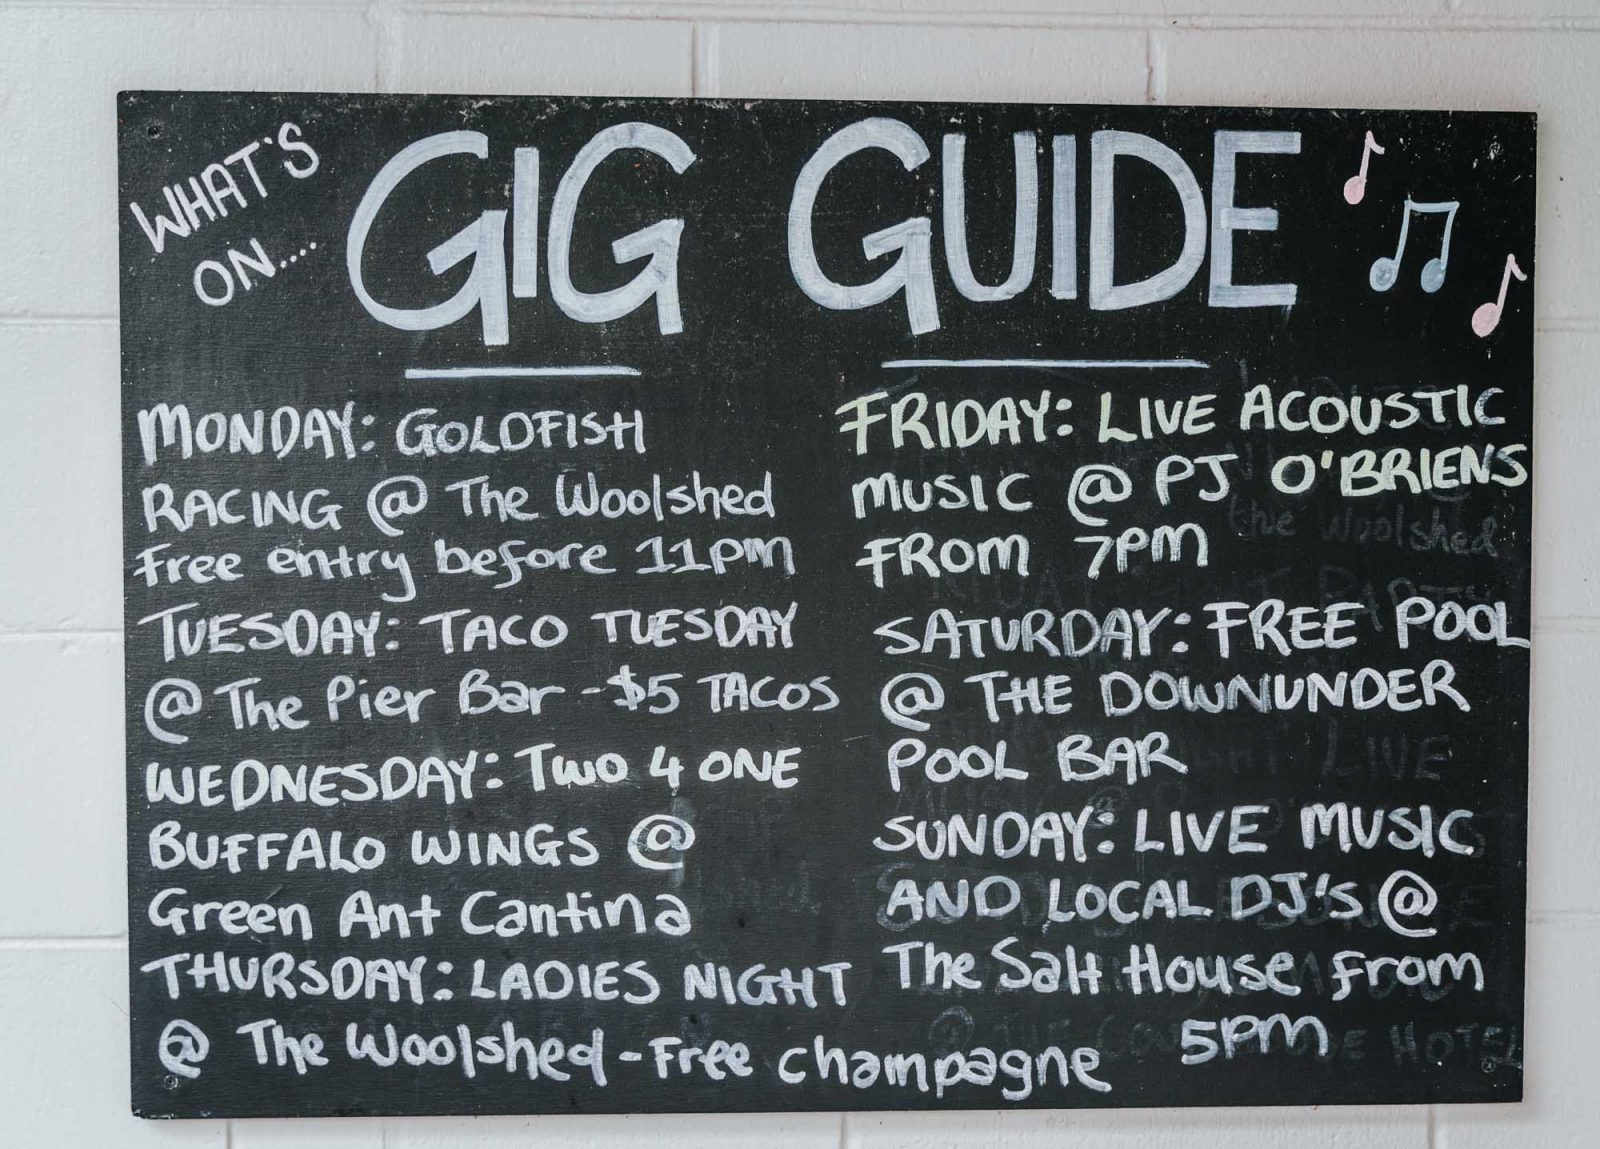 WHAT'S
ON....
GIG GUIDE
MONDAY: GOLDFISH
RACING @ The Woolshed
Free entry before 11pm
TUESDAY: TACO TUESDAY
@ The Pier Bar - $5 TACOS
WEDNESDAY: Two 4 ONE
BUFFALO WINGS @
Green Ant Cantina
THURSDAY: LADIES NIGHT
@ The Woolshed - Free champagne
FRIDAY: LIVE ACOUSTIC
MUSIC @ PJ O'BRIENS
FROM 7PM
the Woolshed
SATURDAY: FREE POOL
@ THE DOWNUNDER
POOL BAR
LIVE
SUNDAY: LIVE MUSIC
AND LOCAL DJ's @
The Salt House From
5PM
HOTEL